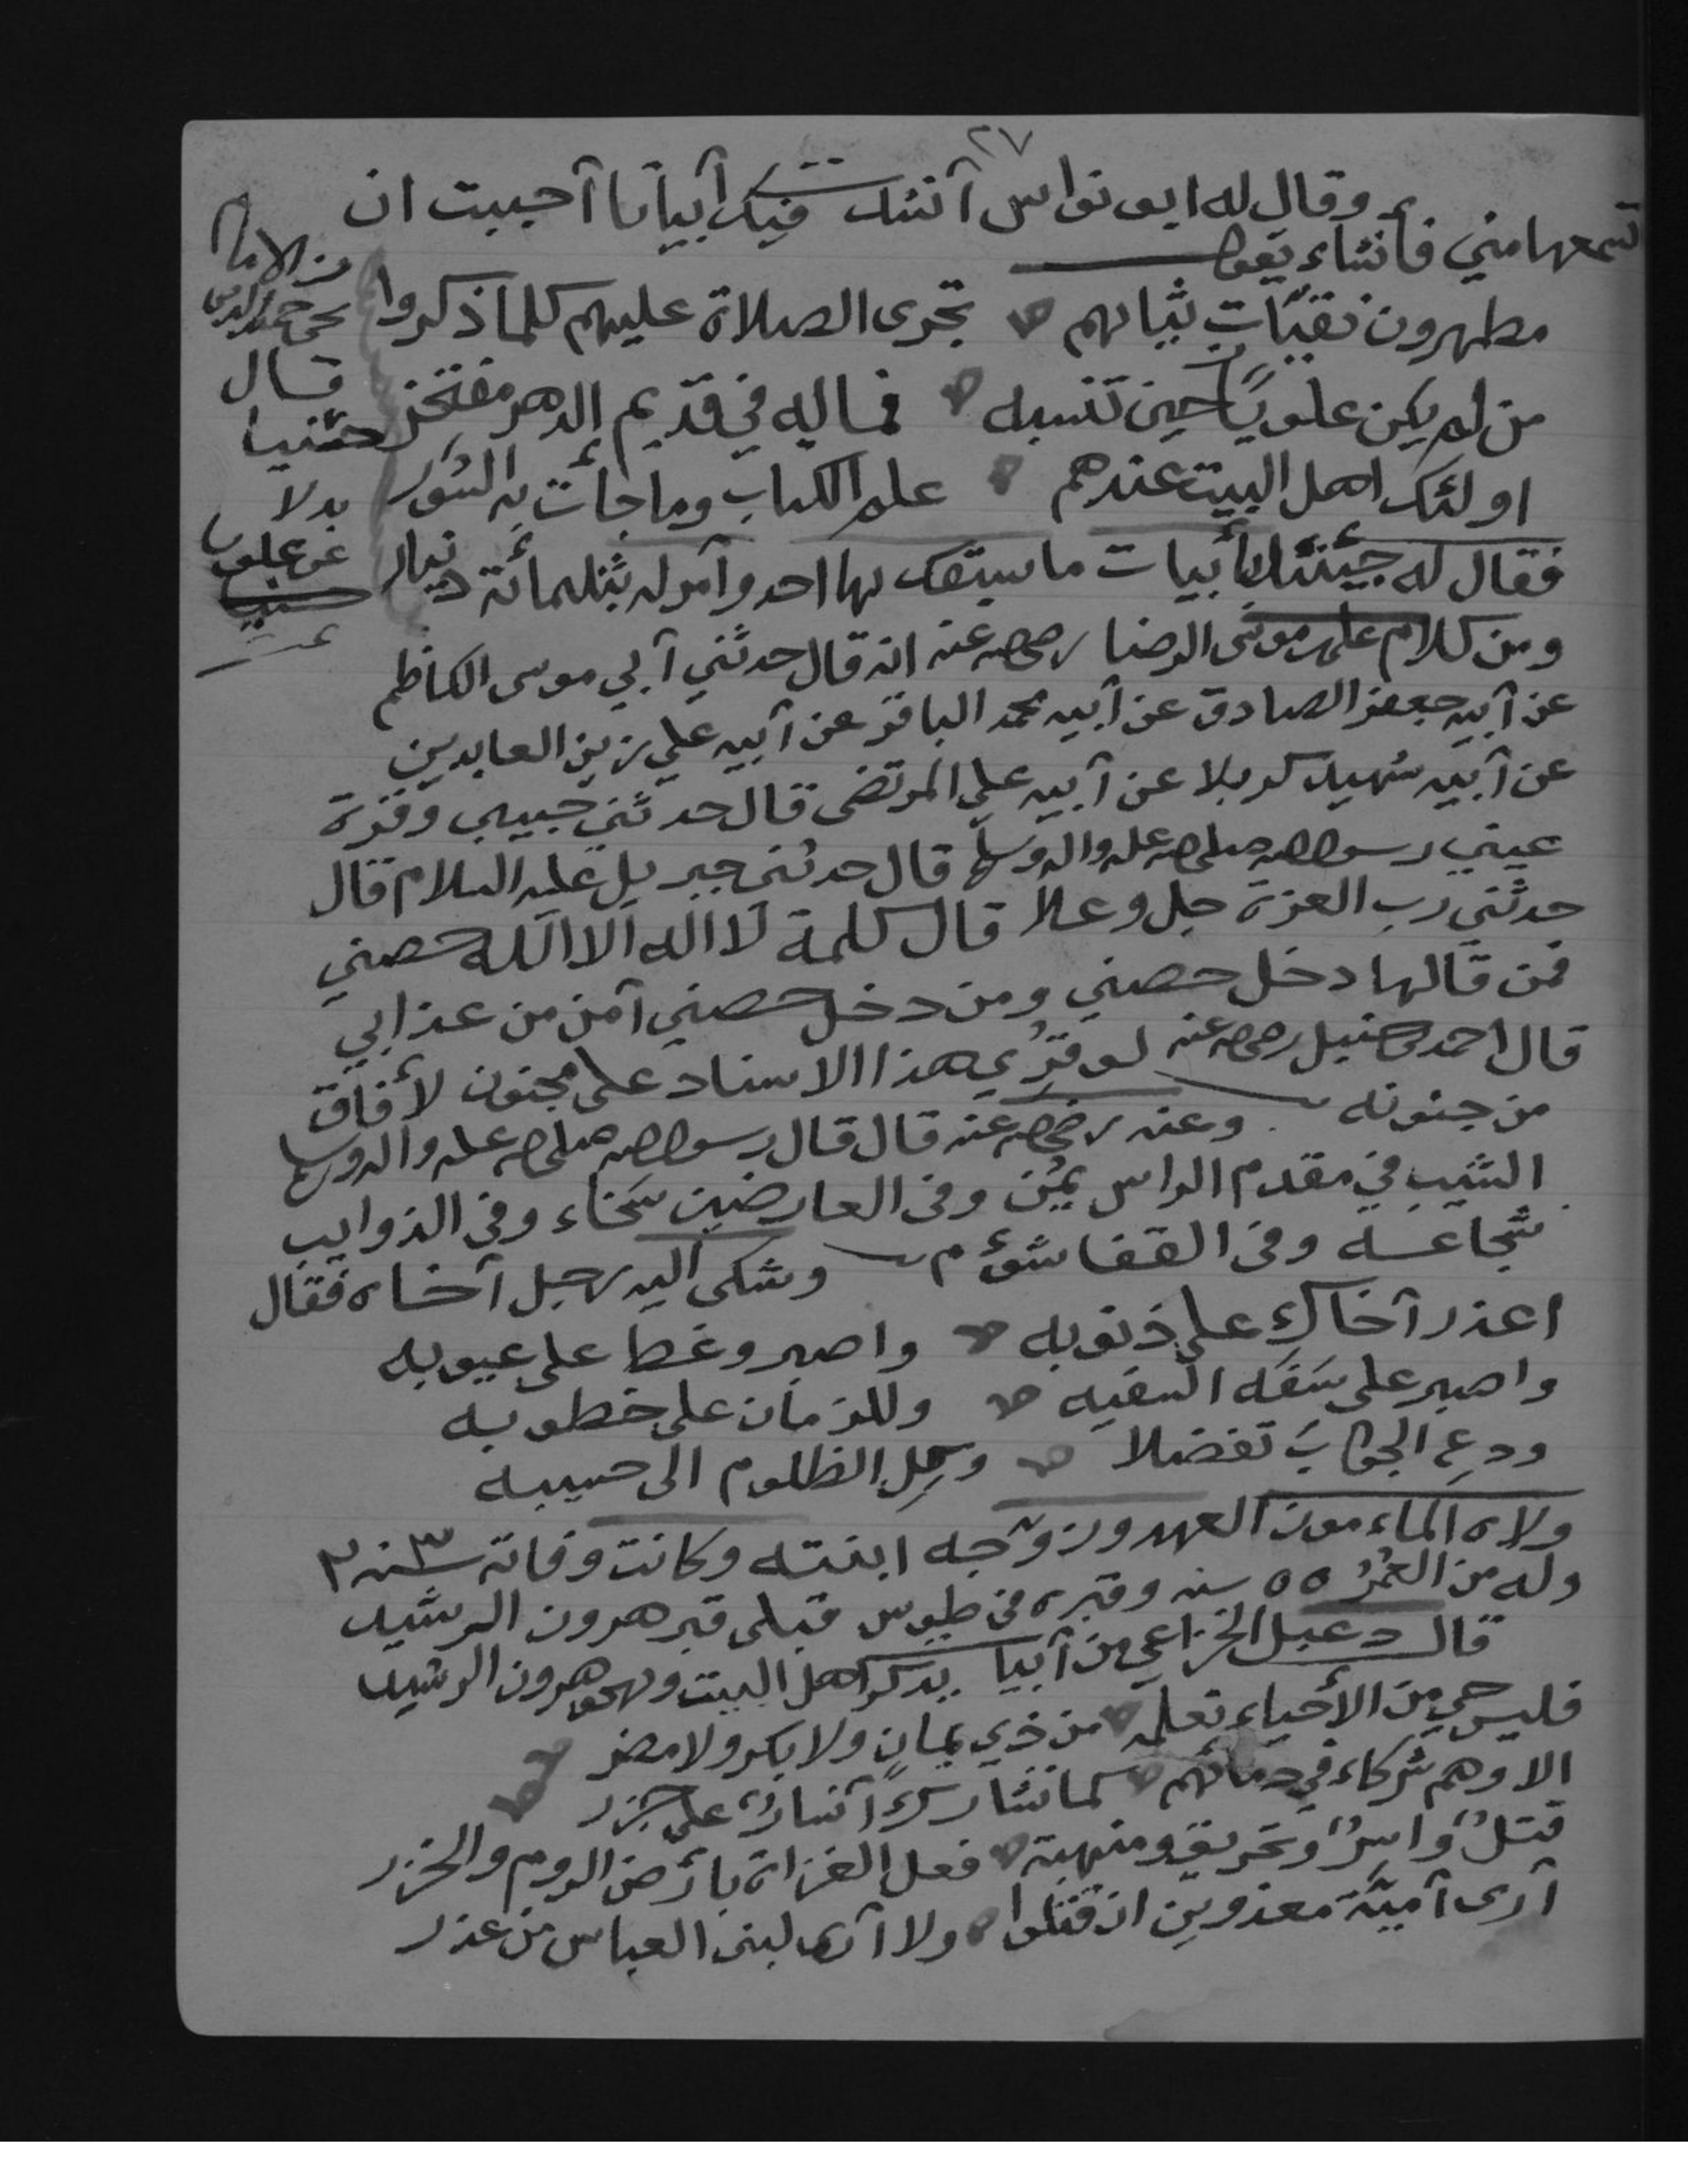 ٢٧
وقال له ابو نواس آنشات فيك آبياتا آحببت ان
تسمعها مني فأنشاء يقول
مطهرون نقيّات ثيابهم تجرى الصلاة عليهم كلما ذكروا
من لم يكن علويًا حين تنسبه فماله في قديم الدهر مفتخر
اولئك اهل البيت عندهم علم الكتاب وما جأت به السُّوَر
فقال له جيئتنا بأبيات ما سبقك بها احد وآمر له بثلمائة دينار
ومن كلام على موسى الرضا رضي الله عنه انه قال حدثني آبي موسى الكاظم
عن آبيه جعفر الصادق عن آبيه محمد الباقر عن آبيه علي زين العابدين
عن آبيه شهيد كربلا عن آبيه علي المرتضى قال حدثني حبيبي وقرة
عيني رسول الله صلى الله عليه واله وسلم قال حدثنى جبريل عليه السلام قال
حدثني رب العزة جل وعلا قال كلمة لا اله الا الله حصني
فمن قالها دخل حصني ومن دخل حصني آمن من عذابي
قال احمد بن حنبل رضي الله عنه لو قرُي هذا الاسناد على مجنون لأفاق
من جنونه وعنه رضي الله عنه قال قال رسول الله صلى الله عليه واله وسلم
الشيب في مقدم الراس يُمْن وفى العارضين سَخاء وفى الذوايب
شجاعه وفى القفا شؤم وشكى اليه رجل آخاه فقال
اعذر آخاك على ذنوبه واصبر وغط على عيوبه
واصبر على سَفَه السفيه وللزمان على خطوبه
ودعِ الجوابَ تفضلا وكِلِ الظلوم الى حسيبه
ولاه الماءمون العهد وزوّجه ابنته وكانت وفاته سنه ٢٠٣
وله من العُمُر ٥٥ سنه وقبره في طوس قبلى قبر هرون الرشيد
قال دعبل الخزاعي من آبيا يذكر اهل البيت ويهجو هرون الرشيد
فليس حي من الأحياء نعلمه من ذي يمانٍ ولا بكر ولا مضر
الا وهم شركاء في دمائهم كما تشارك آيسارٌ على جزر
قتلٌ واسرٌ وتحريق ومنهبة فعل الغزاة بأرض الروم والخزر
آرى آميَّة معذورين ان قتلوا ولا آرى لبنى العباس من عذر
من الامام
يحى حميد الدين
قال
حسنيا
بدلا
عن علويا